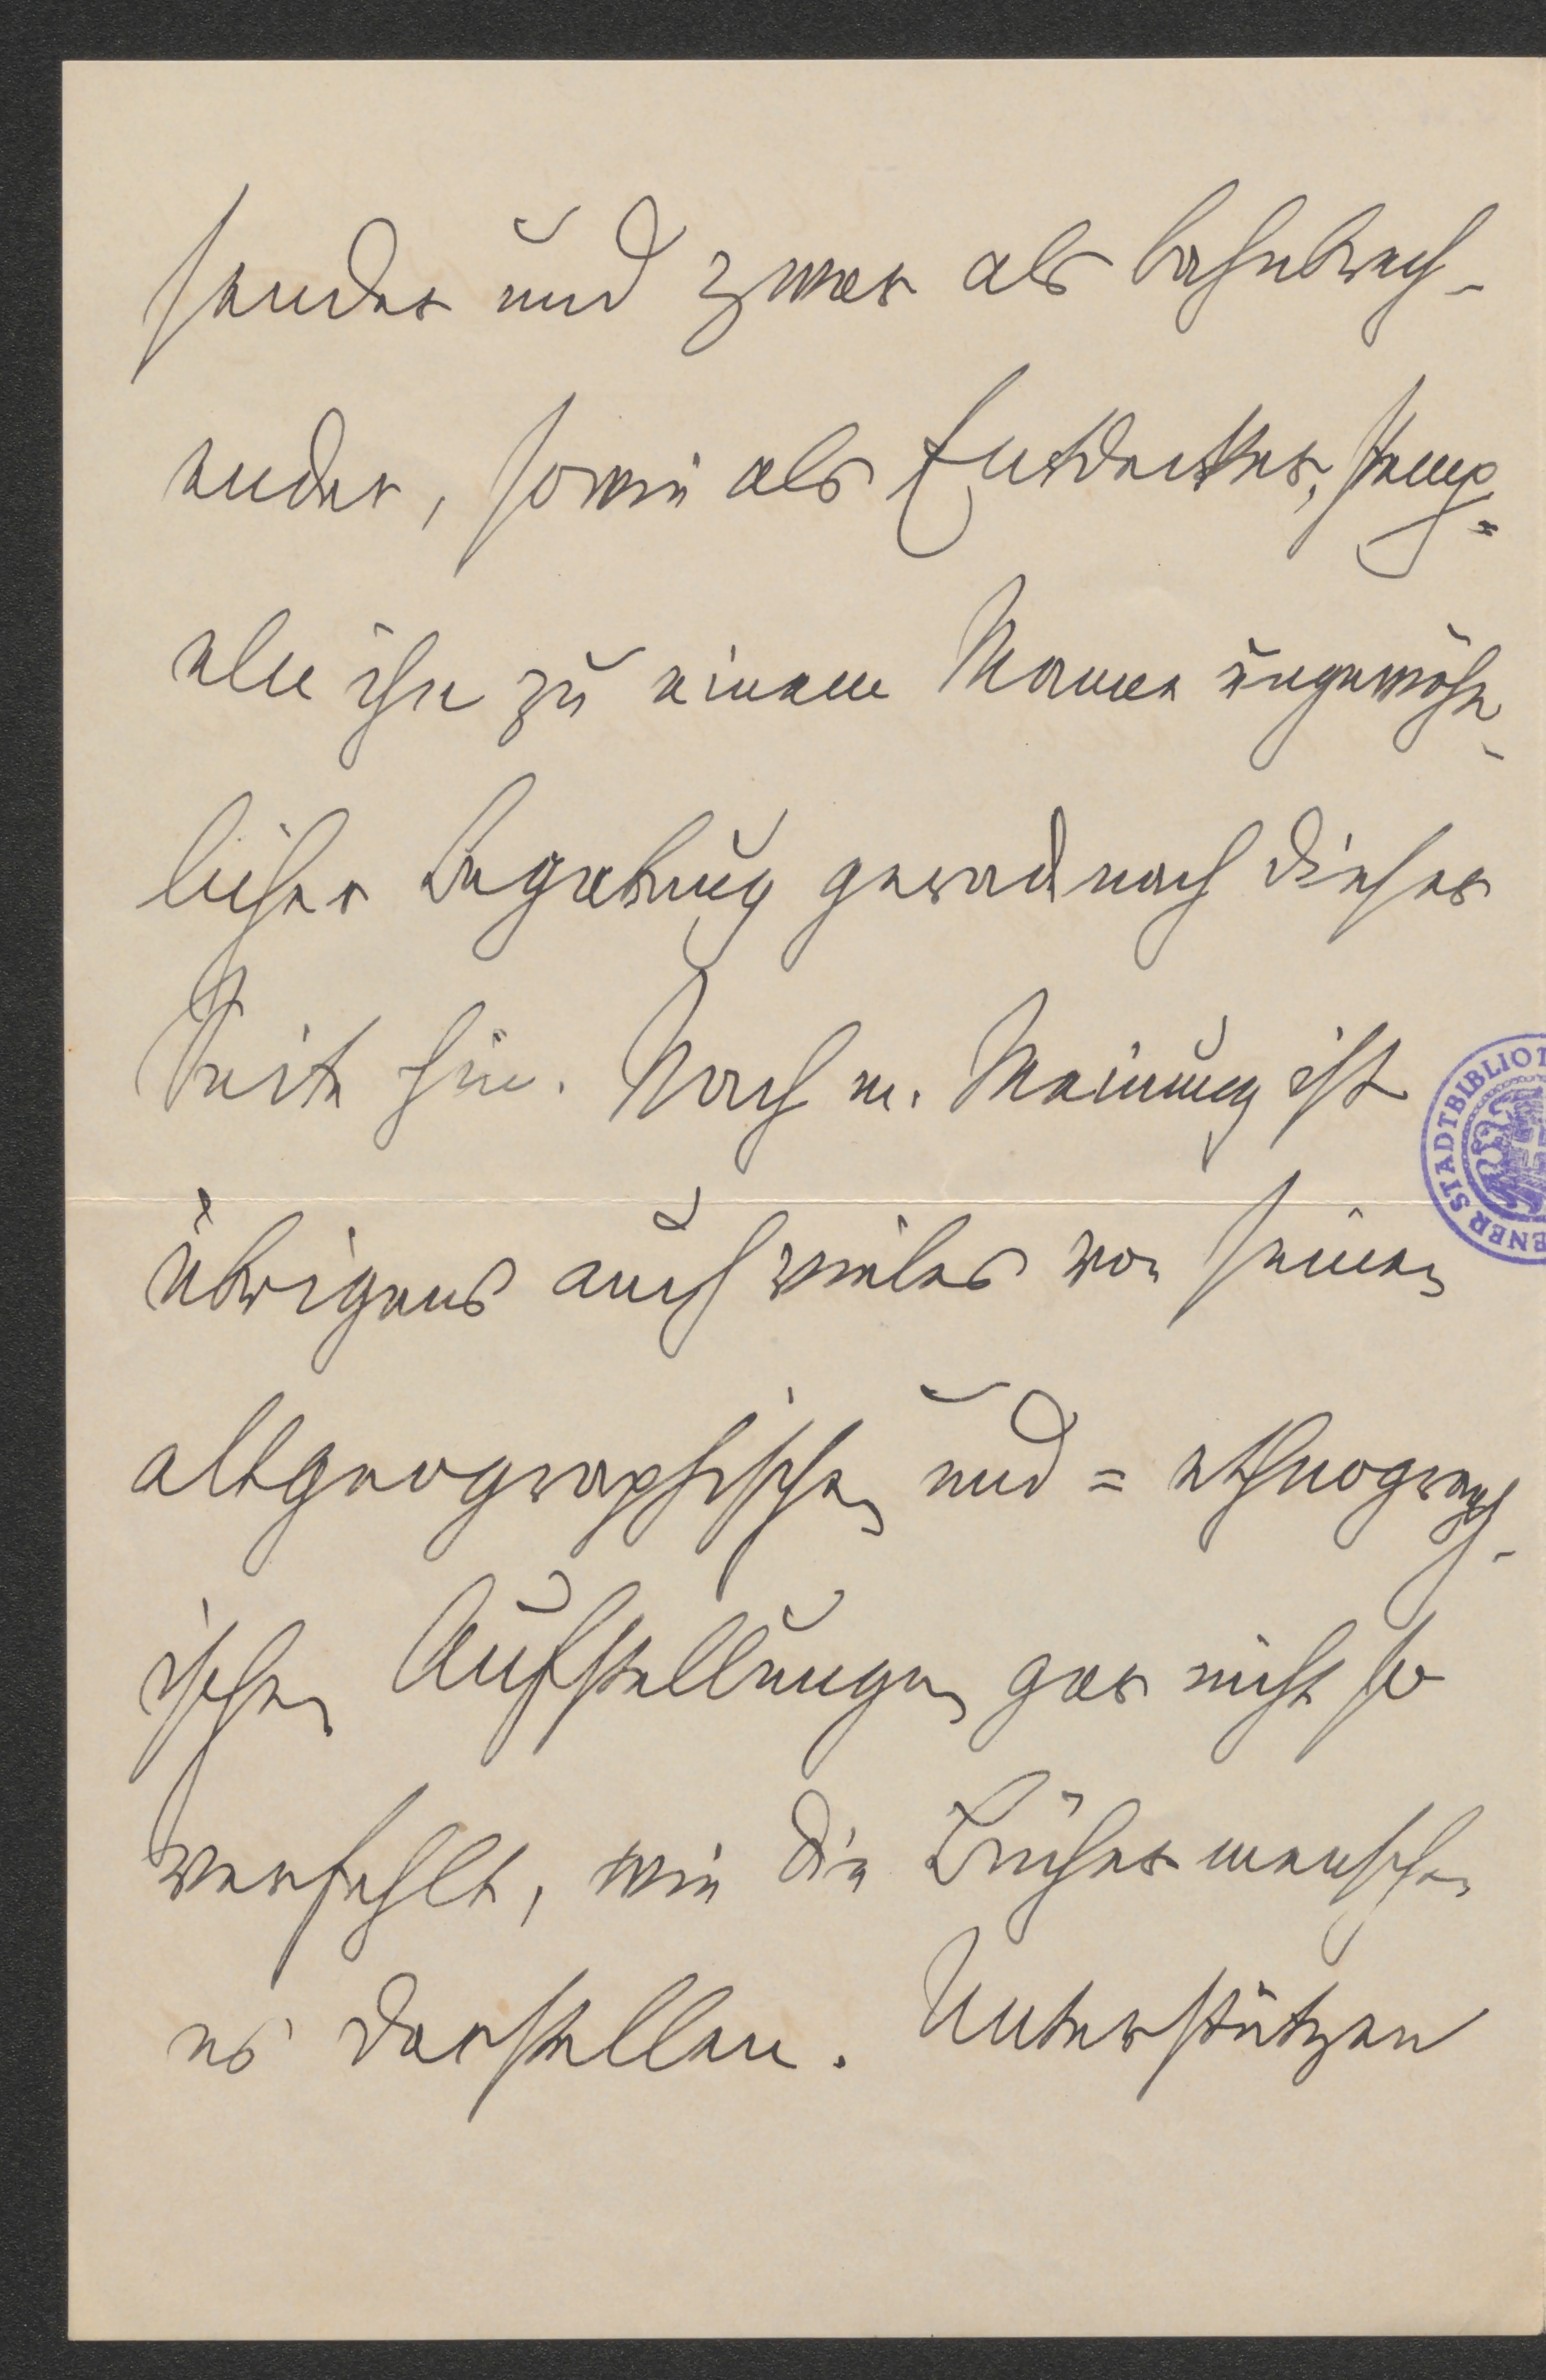 sender und zwar als bahnbrech-
ender, sowie als Entdecker, stemp=
eln ihn zu einem Manne ungewöhn-
licher Begabung gerad nach dieser
Seite hin. Nach m. Meinung ist
übrigens auch vieles von seinen
altgeographischen und =ethnograph-
ischen Aufstellungen gar nicht so
verfehlt, wie die Büchermenschen
es darstellen. Unterstützen
ENER STADTBIBLIOT